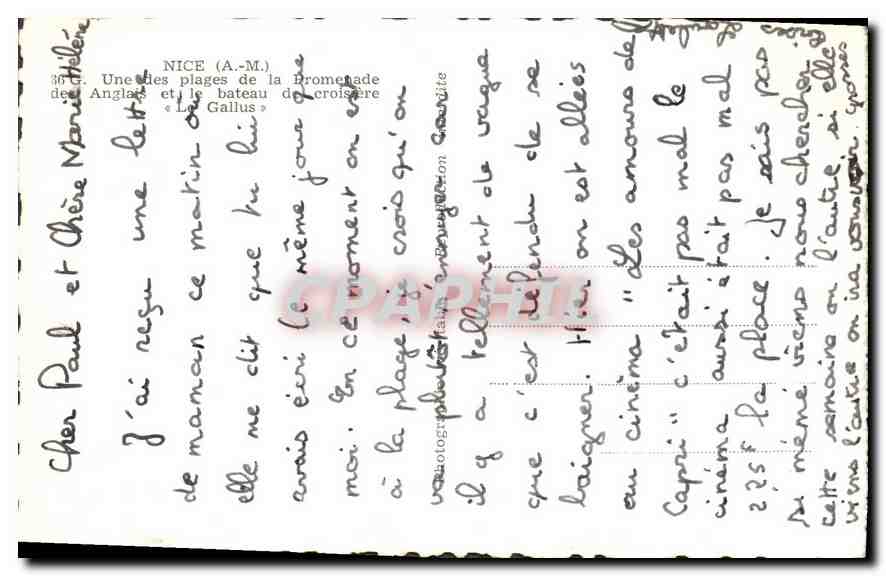 NICE (A.-M.)
36 G. Une des plages de la Promenade
des Anglais et le bateau de croisière
« Le Gallus »
Photographie véritable Reproduction interdite
CPAPHIL
Cher Paul et Chère Marie Hélène
J'ai reçu une lettre
de maman ce matin où
elle me dit que tu lui
avais écri le même jour que
moi. En ce moment on est
à la plage, je crois qu'on
va plutôt car
il y a tellement de vague
que c'est défendu de se
baigner. Hier on est allées
au cinéma "Les amours de
Capri" c'était pas mal le
cinéma aussi était pas mal
225f la place. Je sais pas
si mémé viens nous chercher
cette semaine ou l'autre si elle
viens l'autre on ira vous voir.